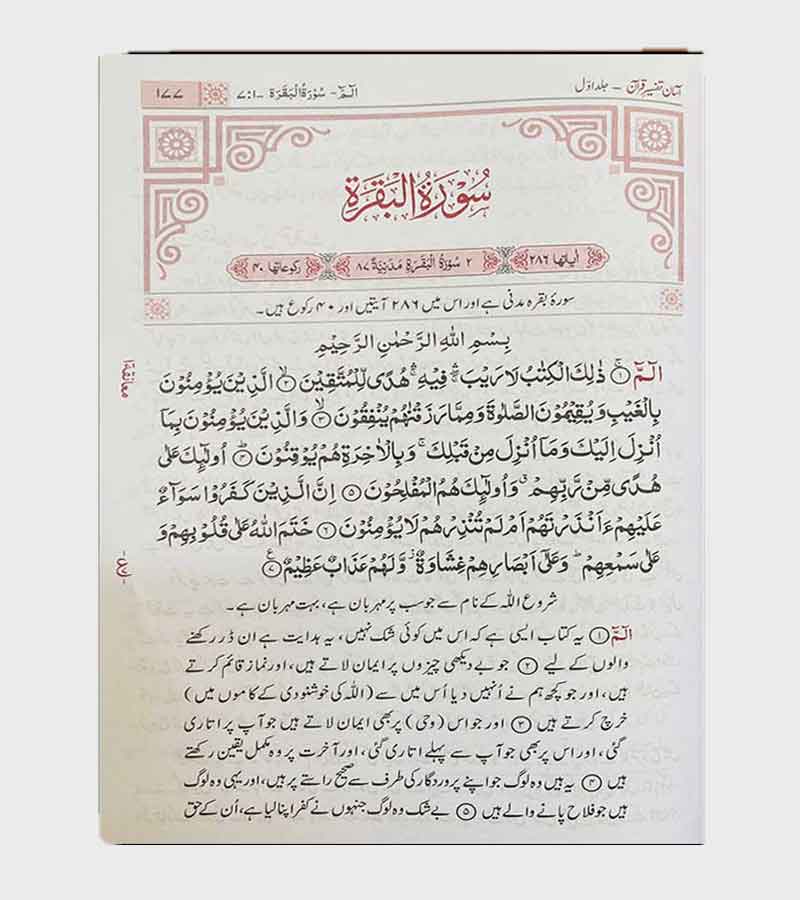 آسان تفسیر قرآن – جلد اوّل
الٓمّٓ - سُوْرَةُ الْبَقَرَة -۷:۱
۱۷۷
سُوْرَةُ الْبَقَرَةِ
اٰیاتها ۲۸۶
۲ سُوْرَةُ الْبَقَرَةِ مَدَنِيَّةٌ ۸۷
رکوعاتها ۴۰
سورۂ بقرہ مدنی ہے اور اس میں ۲۸۶ آیتیں اور ۴۰ رکوع ہیں۔
بِسْمِ اللهِ الرَّحْمٰنِ الرَّحِيْمِ
الٓمّٓ ۚ﴿۱﴾ ذٰلِكَ الْكِتٰبُ لَا رَيْبَ ۛ فِيْهِ ۛ هُدًى لِّلْمُتَّقِيْنَ ۙ﴿۲﴾ الَّذِيْنَ يُؤْمِنُوْنَ
بِالْغَيْبِ وَيُقِيْمُوْنَ الصَّلٰوةَ وَمِمَّا رَزَقْنٰهُمْ يُنْفِقُوْنَ ۙ﴿۳﴾ وَالَّذِيْنَ يُؤْمِنُوْنَ بِمَآ
اُنْزِلَ اِلَيْكَ وَمَآ اُنْزِلَ مِنْ قَبْلِكَ ۚ وَبِالْاٰخِرَةِ هُمْ يُوْقِنُوْنَ ؕ﴿۴﴾ اُولٰٓئِكَ عَلٰى
هُدًى مِّنْ رَّبِّهِمْ ۙ وَاُولٰٓئِكَ هُمُ الْمُفْلِحُوْنَ ﴿۵﴾ اِنَّ الَّذِيْنَ كَفَرُوْا سَوَآءٌ
عَلَيْهِمْ ءَاَنْذَرْتَهُمْ اَمْ لَمْ تُنْذِرْهُمْ لَا يُؤْمِنُوْنَ ﴿۶﴾ خَتَمَ اللهُ عَلٰى قُلُوْبِهِمْ وَ
عَلٰى سَمْعِهِمْ ؕ وَعَلٰٓى اَبْصَارِهِمْ غِشَاوَةٌ ۫ وَّلَهُمْ عَذَابٌ عَظِيْمٌ ﴿۷﴾
معانقة ۱
شروع اللہ کے نام سے جو سب پر مہربان ہے، بہت مہربان ہے۔
الٓمّٓ ﴿۱﴾ یہ کتاب ایسی ہے کہ اس میں کوئی شک نہیں، یہ ہدایت ہے ان ڈر رکھنے
والوں کے لیے ﴿۲﴾ جو بے دیکھی چیزوں پر ایمان لاتے ہیں، اور نماز قائم کرتے
ہیں، اور جو کچھ ہم نے اُنہیں دیا اُس میں سے (اللہ کی خوشنودی کے کاموں میں)
خرچ کرتے ہیں ﴿۳﴾ اور جو اس (وحی) پر بھی ایمان لاتے ہیں جو آپ پر اتاری
گئی، اور اس پر بھی جو آپ سے پہلے اتاری گئی، اور آخرت پر وہ مکمل یقین رکھتے
ہیں ﴿۴﴾ یہ ہیں وہ لوگ جو اپنے پروردگار کی طرف سے صحیح راستے پر ہیں، اور یہی وہ لوگ
ہیں جو فلاح پانے والے ہیں ﴿۵﴾ بے شک وہ لوگ جنہوں نے کفر اپنا لیا ہے، اُن کے حق